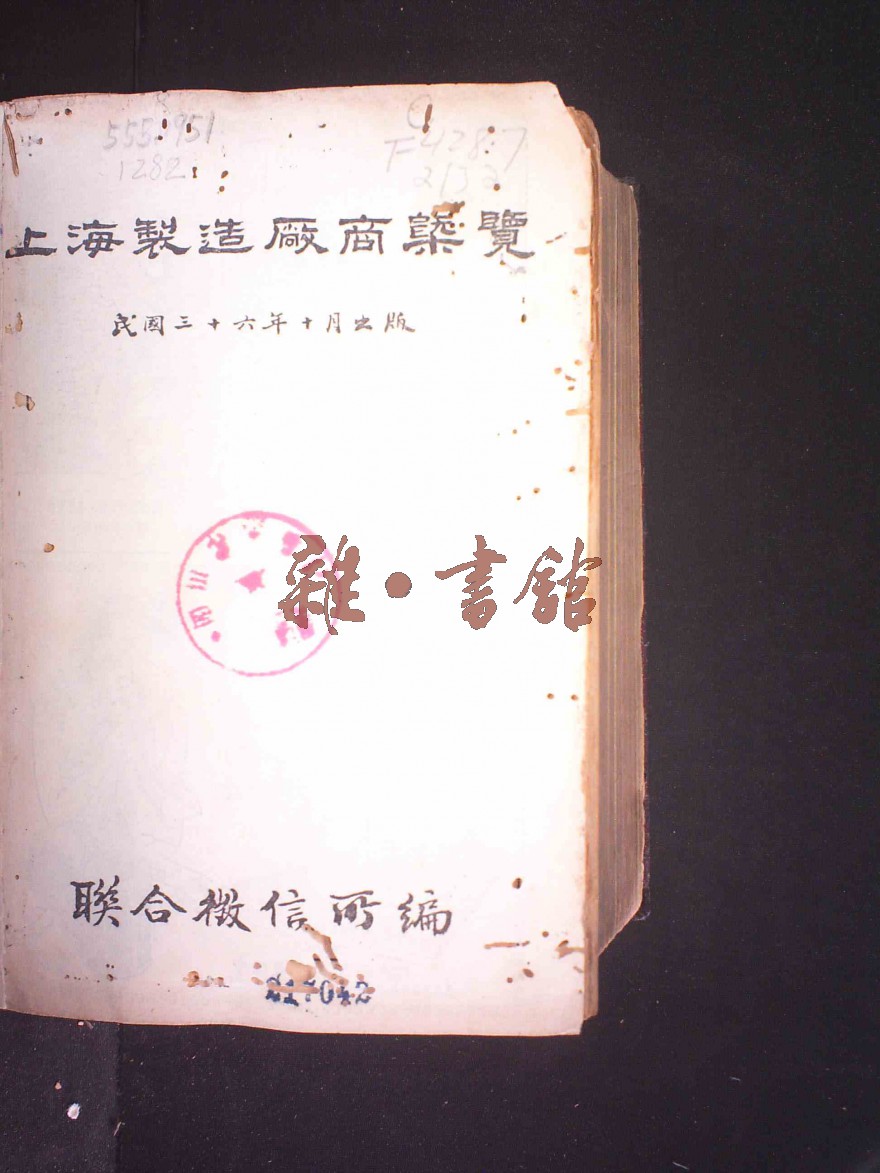 555.951
1282
F428.7
上海製造廠商槩覽
民國三十六年十月出版
四川省
雜•書館
聯合徵信所編
217042